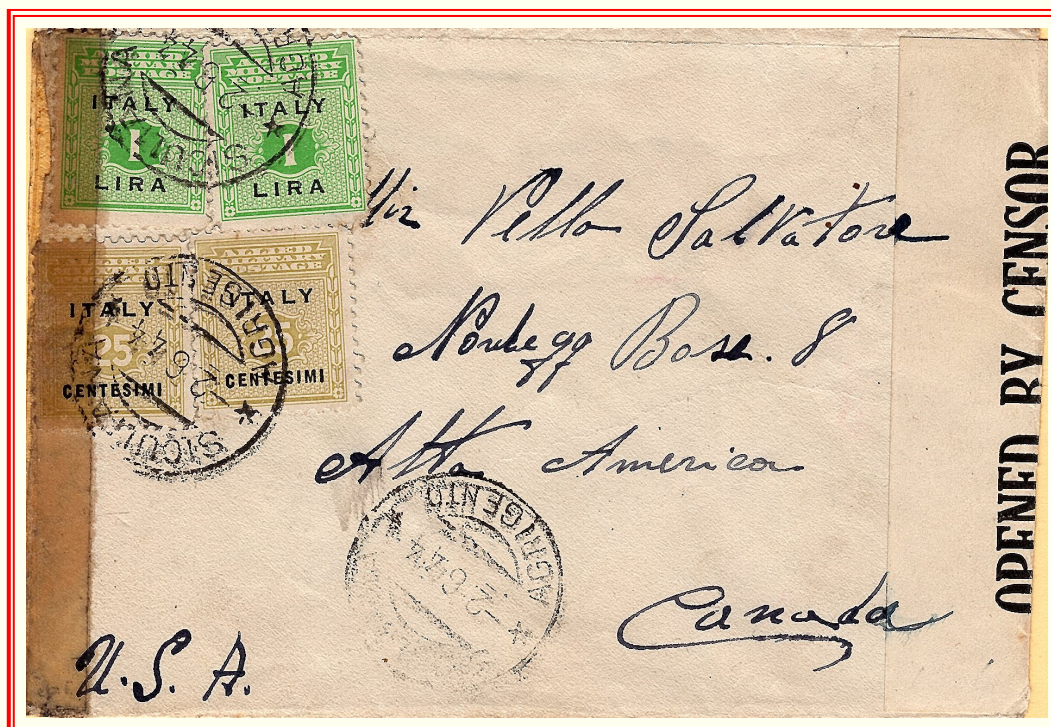 ALLIED MILITARY POSTAGE
ITALY
1
LIRA
ALLIED MILITARY POSTAGE
ITALY
1
LIRA
ALLIED MILITARY POSTAGE
ITALY
25
CENTESIMI
ALLIED MILITARY POSTAGE
ITALY
25
CENTESIMI
AGRIGENTO
2.6.44
SICULIANA
AGRIGENTO
-2.6.44
Vella Salvatore
Nordegg Box. 8
Alta America
Canada
U.S.A.
OPENED BY CENSOR